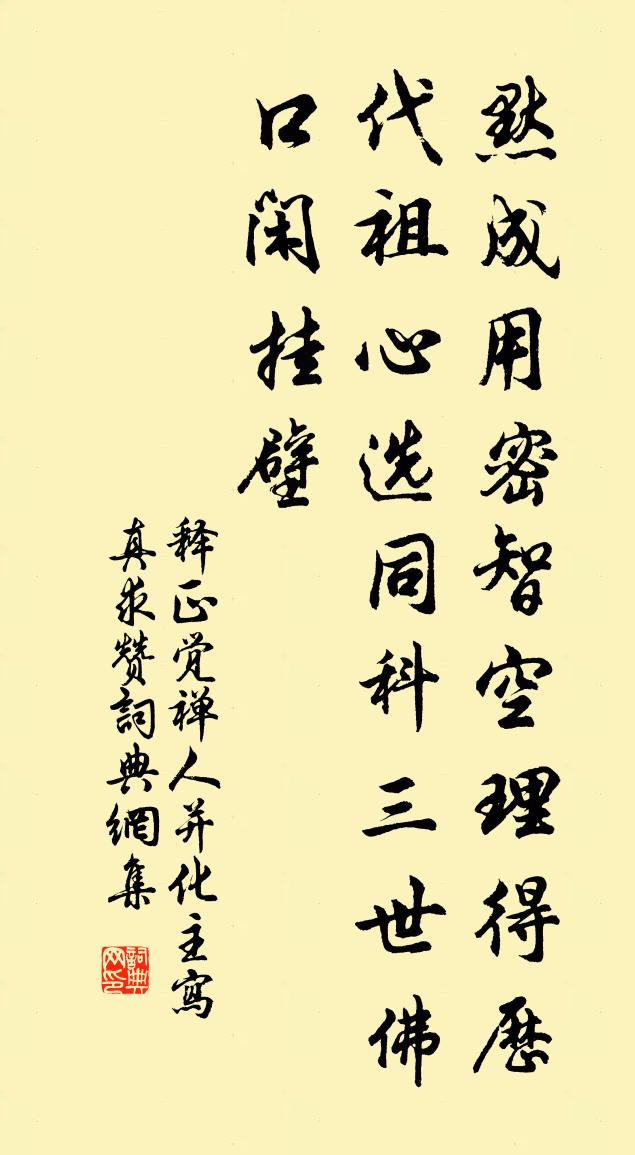 默成用密智空理得歷
代祖心选同科三世佛
口閑挂壁
释正觉禅人并化主寫
真求赞詞典網集
詞典网印